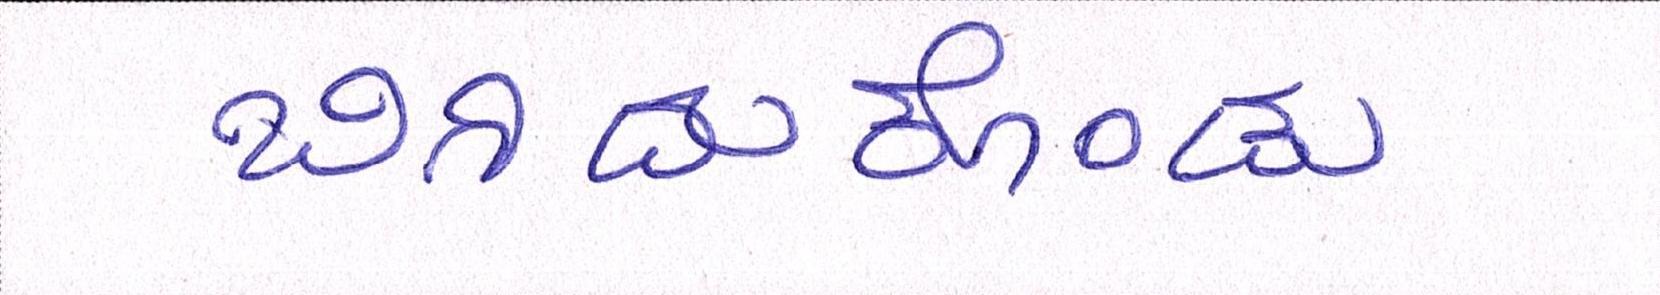 ಬಿಗಿದುಕೊಂಡು